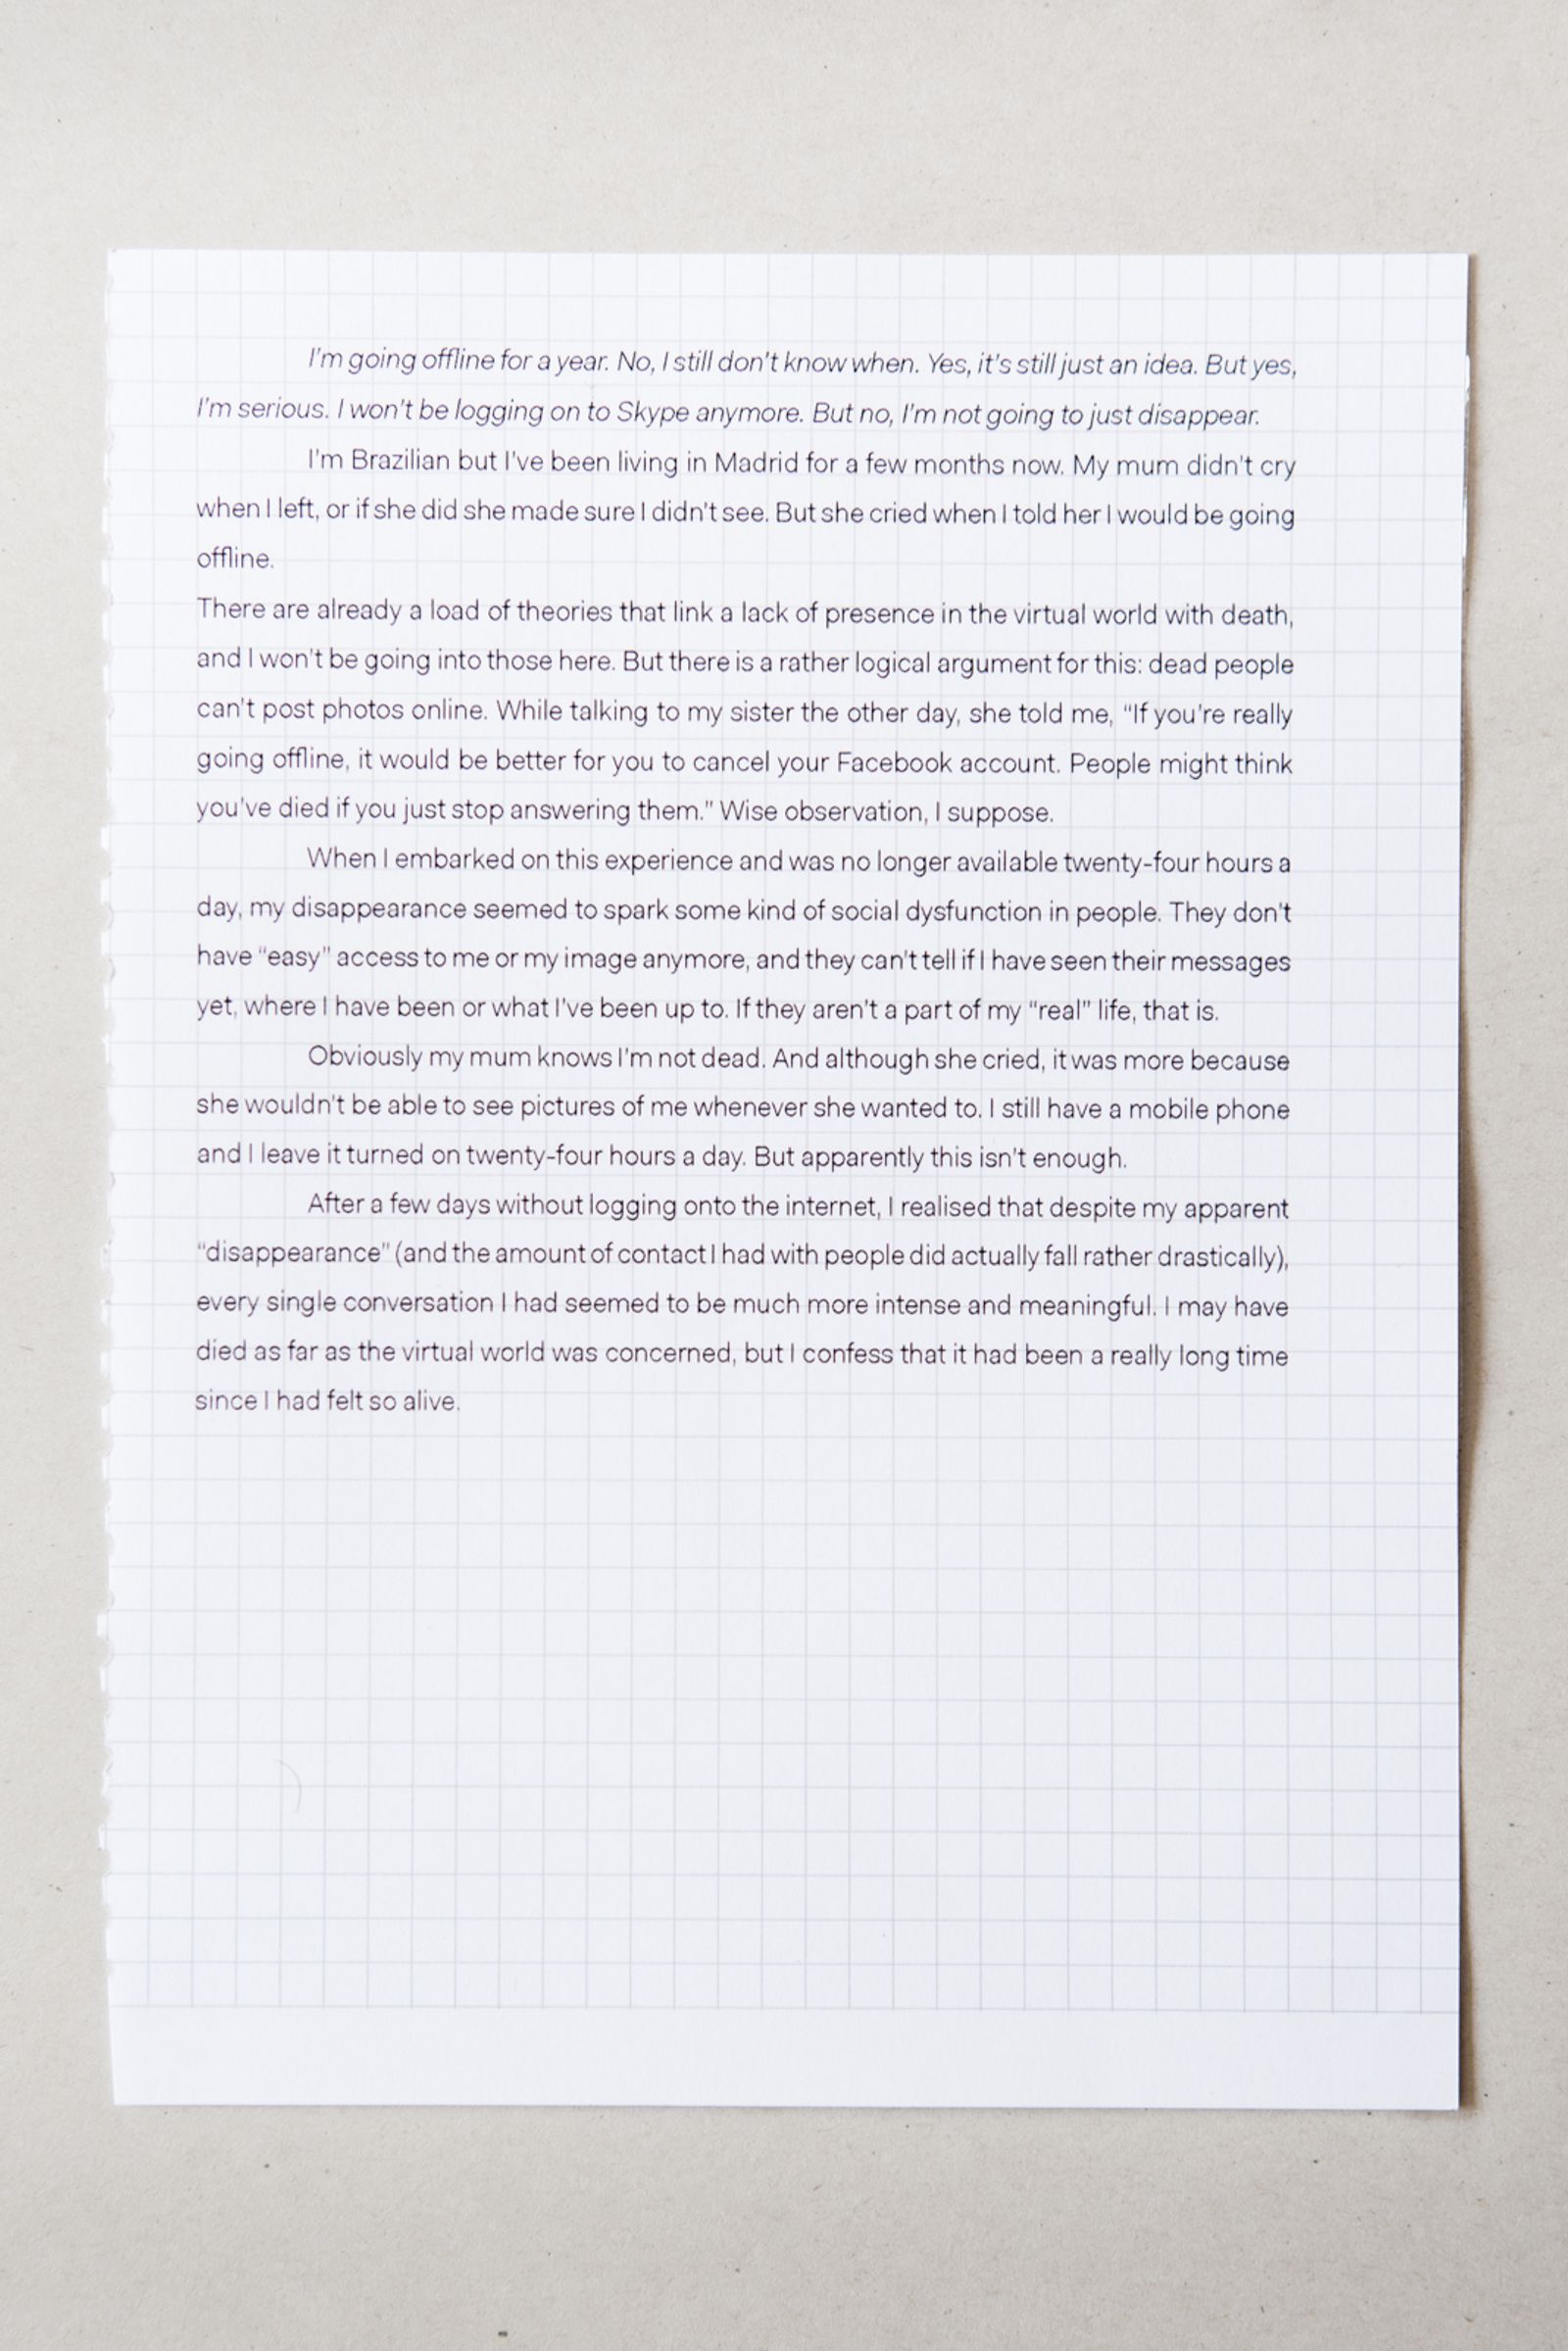 I'm going offline for a year. No, I still don't know when. Yes, it's still just an idea. But yes,
I'm serious. I won't be logging on to Skype anymore. But no, I'm not going to just disappear.
I'm Brazilian but I've been living in Madrid for a few months now. My mum didn't cry
when I left, or if she did she made sure I didn't see. But she cried when I told her I would be going
offline.
There are already a load of theories that link a lack of presence in the virtual world with death,
and I won't be going into those here. But there is a rather logical argument for this: dead people
can't post photos online. While talking to my sister the other day, she told me, “If you're really
going offline, it would be better for you to cancel your Facebook account. People might think
you've died if you just stop answering them.” Wise observation, I suppose.
When I embarked on this experience and was no longer available twenty-four hours a
day, my disappearance seemed to spark some kind of social dysfunction in people. They don't
have “easy” access to me or my image anymore, and they can't tell if I have seen their messages
yet, where I have been or what I've been up to. If they aren't a part of my “real” life, that is.
Obviously my mum knows I'm not dead. And although she cried, it was more because
she wouldn't be able to see pictures of me whenever she wanted to. I still have a mobile phone
and I leave it turned on twenty-four hours a day. But apparently this isn't enough.
After a few days without logging onto the internet, I realised that despite my apparent
“disappearance” (and the amount of contact I had with people did actually fall rather drastically),
every single conversation I had seemed to be much more intense and meaningful. I may have
died as far as the virtual world was concerned, but I confess that it had been a really long time
since I had felt so alive.